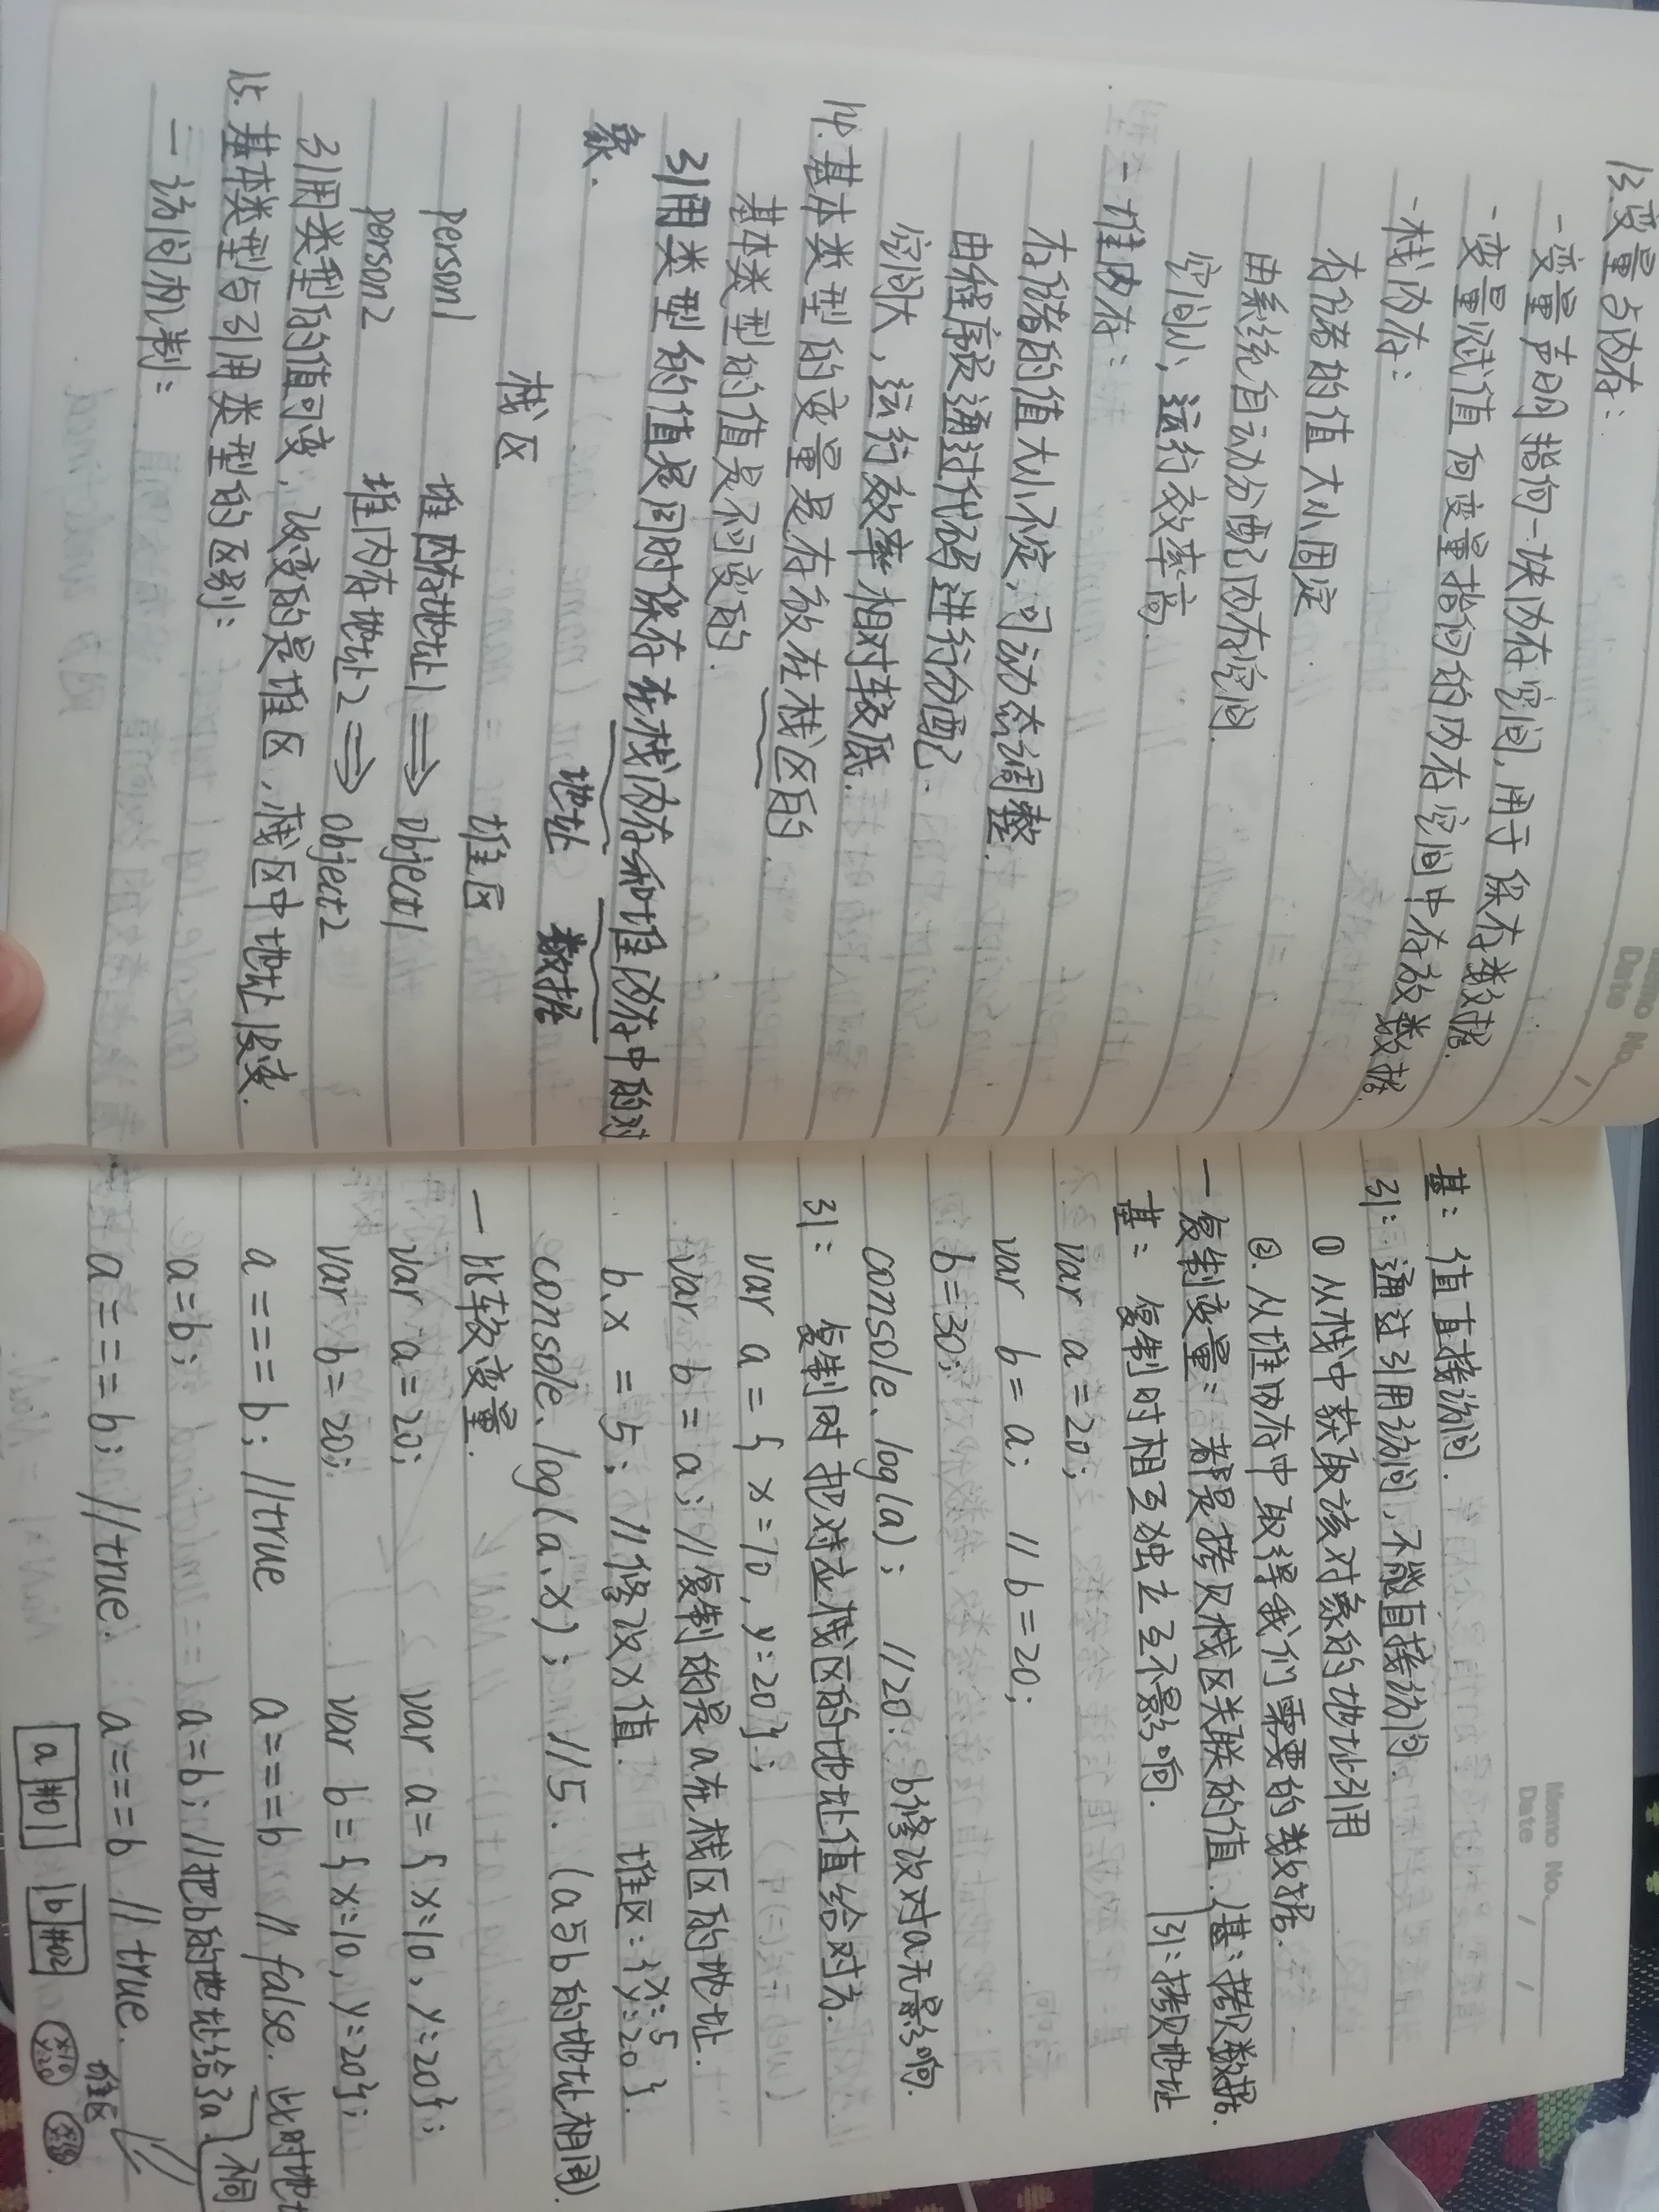 Memo No.
Date
13.变量与内存:
-变量声明指向一块内存空间,用于保存数据.
-变量赋值向变量指向的内存空间中存放数据.
-栈内存:
存储的值大小固定
由系统自动分配内存空间.
空间小,运行效率高.
-堆内存:
存储的值大小不定,可动态调整.
由程序员通过代码进行分配.
空间大,运行效率相对较低.
14.基本类型的变量是存放在栈区的
基本类型的值是不可变的.
引用类型的值是同时保存在栈内存和堆内存中的对
象.
地址 数据
栈区 堆区
person1 堆内存地址1 ⇒ object1
person2 堆内存地址2 ⇒ object2
引用类型的值可变,改变的是堆区,栈区中地址没变.
15.基本类型与引用类型的区别:
-访问机制:
Memo No.
Date / /
基:值直接访问.
引:通过引用访问,不能直接访问.
① 从栈中获取该对象的地址引用
②.从堆内存中取得我们需要的数据.
-复制变量:都是拷贝栈区关联的值.(基:拷贝数据.
引:拷贝地址
基:复制时相互独立互不影响.
var a=20;
var b=a; // b=20;
b=30;
console.log(a); //20. b修改对a无影响.
引: 复制时把对应栈区的地址值给对方.
var a={x:10,y:20};
var b=a; //复制的是a在栈区的地址.
b.x=5; //修改x值. 堆区:{x:5 y:20}.
console.log(a.x); //5. (a与b的地址相同).
-比较变量.
var a=20; var a={x:10,y:20};
var b=20; var b={x:10,y:20};
a===b; //true a===b // false. 此时地址
不同
a=b; a=b; //把b的地址给了a.
a===b; //true. a===b // true.
a #01 b #02
堆区